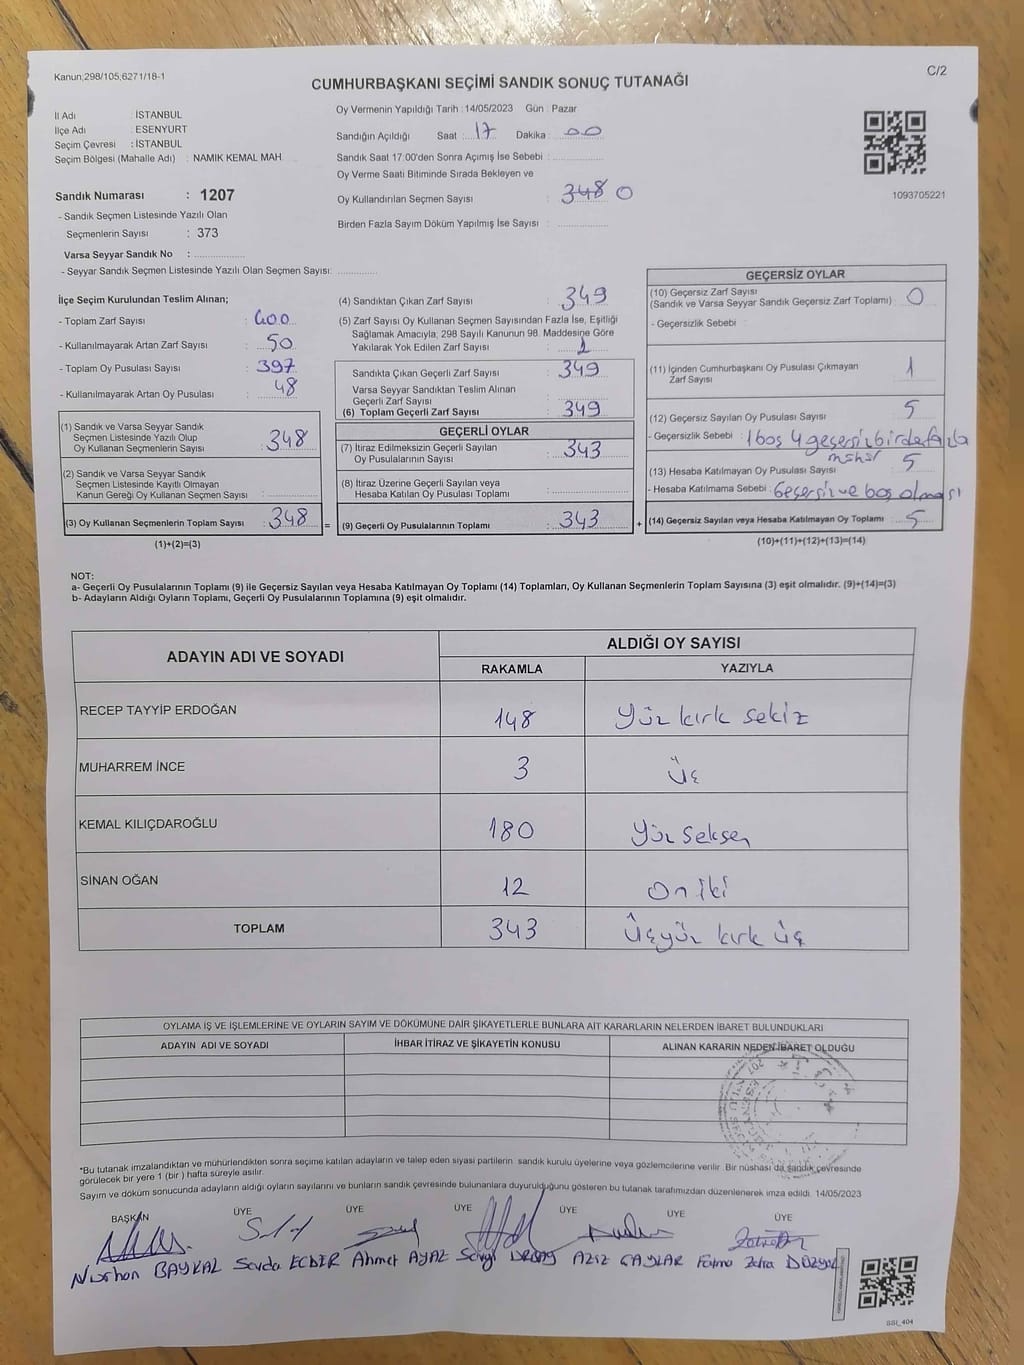 Kanun;298/105;6271/18-1
C/2
CUMHURBAŞKANI SEÇİMİ SANDIK SONUÇ TUTANAĞI
İl Adı : İSTANBUL
İlçe Adı : ESENYURT
Seçim Çevresi : İSTANBUL
Seçim Bölgesi (Mahalle Adı) : NAMIK KEMAL MAH.
Oy Vermenin Yapıldığı Tarih :14/05/2023 Gün : Pazar
Sandığın Açıldığı Saat : 17 Dakika : 00
Sandık Saat 17:00'den Sonra Açımış İse Sebebi :
Oy Verme Saati Bitiminde Sırada Bekleyen ve
Oy Kullandırılan Seçmen Sayısı : 348 0
Birden Fazla Sayım Döküm Yapılmış İse Sayısı :
1093705221
Sandık Numarası : 1207
- Sandık Seçmen Listesinde Yazılı Olan
Seçmenlerin Sayısı : 373
Varsa Seyyar Sandık No :
- Seyyar Sandık Seçmen Listesinde Yazılı Olan Seçmen Sayısı:
İlçe Seçim Kurulundan Teslim Alınan;
- Toplam Zarf Sayısı : 400
- Kullanılmayarak Artan Zarf Sayısı : 50
- Toplam Oy Pusulası Sayısı : 397
- Kullanılmayarak Artan Oy Pusulası : 48
(1) Sandık ve Varsa Seyyar Sandık
Seçmen Listesinde Yazılı Olup
Oy Kullanan Seçmenlerin Sayısı : 348
(2) Sandık ve Varsa Seyyar Sandık
Seçmen Listesinde Kayıtlı Olmayan
Kanun Gereği Oy Kullanan Seçmen Sayısı :
(3) Oy Kullanan Seçmenlerin Toplam Sayısı : 348 =
(1)+(2)=(3)
(4) Sandıktan Çıkan Zarf Sayısı : 349
(5) Zarf Sayısı Oy Kullanan Seçmen Sayısından Fazla İse, Eşitliği
Sağlamak Amacıyla; 298 Sayılı Kanunun 98. Maddesine Göre
Yakılarak Yok Edilen Zarf Sayısı :
Sandıkta Çıkan Geçerli Zarf Sayısı : 349
Varsa Seyyar Sandıktan Teslim Alınan
Geçerli Zarf Sayısı :
(6) Toplam Geçerli Zarf Sayısı : 349
GEÇERLİ OYLAR
(7) İtiraz Edilmeksizin Geçerli Sayılan
Oy Pusulalarının Sayısı : 343
(8) İtiraz Üzerine Geçerli Sayılan veya
Hesaba Katılan Oy Pusulası Toplamı :
(9) Geçerli Oy Pusulalarının Toplamı : 343 +
GEÇERSİZ OYLAR
(10) Geçersiz Zarf Sayısı
(Sandık ve Varsa Seyyar Sandık Geçersiz Zarf Toplamı) : 0
- Geçersizlik Sebebi :
(11) İçinden Cumhurbaşkanı Oy Pusulası Çıkmayan
Zarf Sayısı : 1
(12) Geçersiz Sayılan Oy Pusulası Sayısı : 5
- Geçersizlik Sebebi : 1 boş 4 geçersiz birden fazla
mühür
(13) Hesaba Katılmayan Oy Pusulası Sayısı : 5
- Hesaba Katılmama Sebebi : Geçersiz ve boş olması
(14) Geçersiz Sayılan veya Hesaba Katılmayan Oy Toplamı : 5
(10)+(11)+(12)+(13)=(14)
NOT:
a- Geçerli Oy Pusulalarının Toplamı (9) ile Geçersiz Sayılan veya Hesaba Katılmayan Oy Toplamı (14) Toplamları, Oy Kullanan Seçmenlerin Toplam Sayısına (3) eşit olmalıdır. (9)+(14)=(3)
b- Adayların Aldığı Oyların Toplamı, Geçerli Oy Pusulalarının Toplamına (9) eşit olmalıdır.
ADAYIN ADI VE SOYADI
ALDIĞI OY SAYISI
RAKAMLA YAZIYLA
RECEP TAYYİP ERDOĞAN 148 Yüz kırk sekiz
MUHARREM İNCE 3 üç
KEMAL KILIÇDAROĞLU 180 Yüz seksen
SİNAN OĞAN 12 on iki
TOPLAM 343 üçyüz kırk üç
OYLAMA İŞ VE İŞLEMLERİNE VE OYLARIN SAYIM VE DÖKÜMÜNE DAİR ŞİKAYETLERLE BUNLARA AİT KARARLARIN NELERDEN İBARET BULUNDUKLARI
ADAYIN ADI VE SOYADI İHBAR İTİRAZ VE ŞİKAYETİN KONUSU ALINAN KARARIN NEDEN İBARET OLDUĞU
*Bu tutanak imzalandıktan ve mühürlendikten sonra seçime katılan adayların ve talep eden siyasi partilerin sandık kurulu üyelerine veya gözlemcilerine verilir. Bir nüshası da sandık çevresinde
görülecek bir yere 1 (bir ) hafta süreyle asılır.
Sayım ve döküm sonucunda adayların aldığı oyların sayılarını ve bunların sandık çevresinde bulunanlara duyurulduğunu gösteren bu tutanak tarafımızdan düzenlenerek imza edildi. 14/05/2023
BAŞKAN ÜYE ÜYE ÜYE ÜYE ÜYE ÜYE
Nurhan BAYKAL Sevda ECDER Ahmet AYAZ Sevgi Aziz ÇAYLAR Fatma Zehra
SSI_404